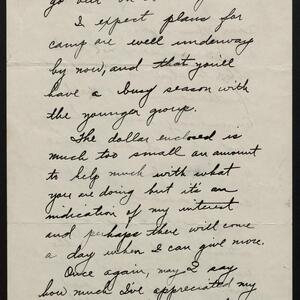 go out on
I expect plans for
camp are well underway
by now, and that you'll
have a busy season with
the younger group.
The dollar enclosed is
much too small an amount
to help much with what
you are doing but it's an
indication of my interest
and perhaps there will come
a day when I can give more.
Once again, may I say
how much I've appreciated my